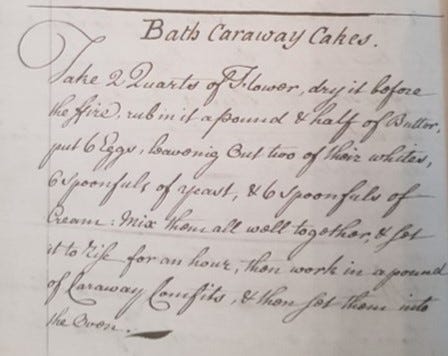 Bath Caraway Cakes.
Take 2 Quarts of Flower, dry it before
the fire, rub in it a pound & half of Butter,
put 6 Eggs, leavenig out two of their whites,
6 spoonfuls of yeast, & 6 spoonfuls of
Cream: Mix them all well together, & set
it to rise for an hour, then work in a pound
of Caraway Comfits, & then set them into
the Oven.